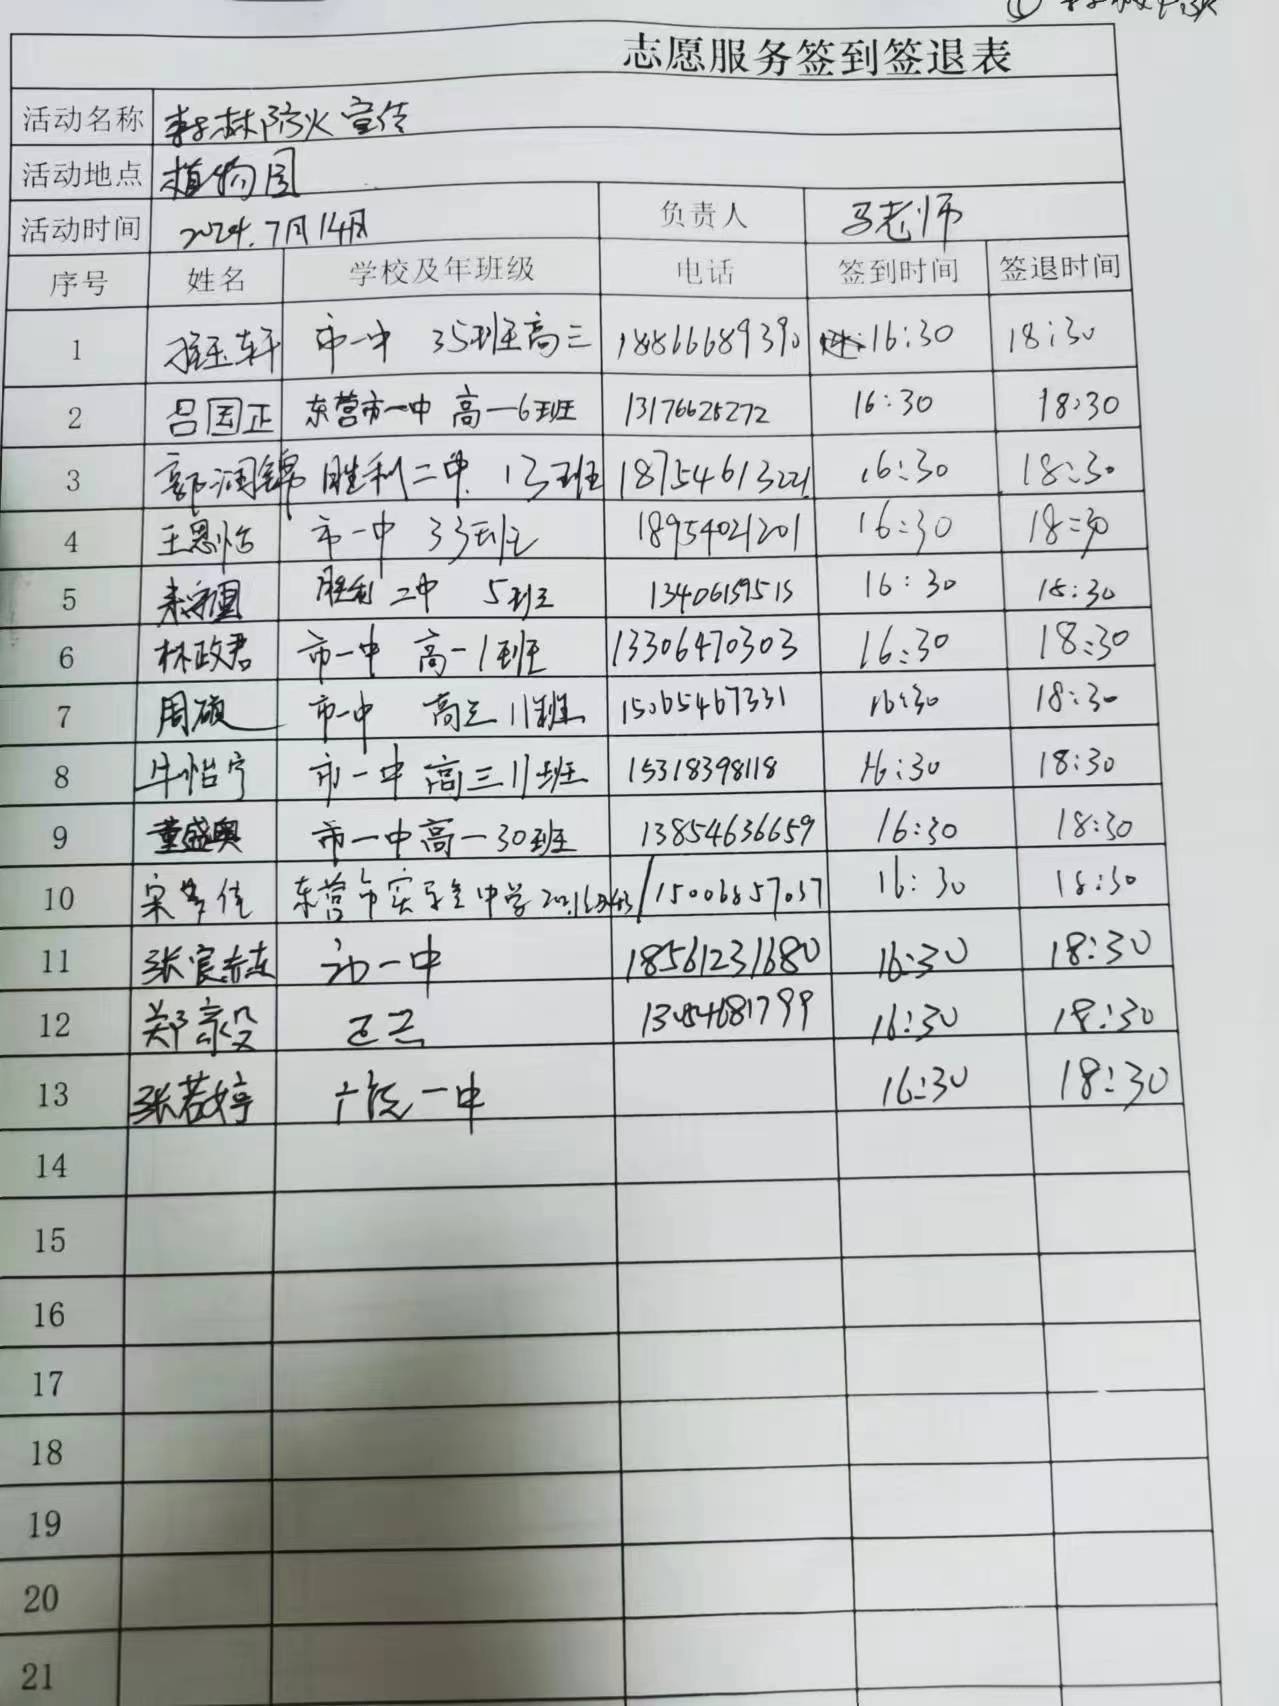 志愿服务签到签退表
活动名称 森林防火宣传
活动地点 植物园
活动时间 2024.7月14日 负责人 马老师
序号 姓名 学校及年班级 电话 签到时间 签退时间
1 轩 市一中 35班高三 18866689390 16:30 18:30
2 吕国正 东营市一中 高一6班 13176625272 16:30 18:30
3 郭润锦 胜利二中 13班 18754613221 16:30 18:30
4 王思怡 市一中 33班 18954021201 16:30 18:30
5 胜利二中 5班 13406159515 16:30 18:30
6 林政君 市一中 高一1班 13306470303 16:30 18:30
7 周硕 市一中 高三11班 15065467331 16:30 18:30
8 牛怡宁 市一中高三11班 15318398118 16:30 18:30
9 董盛奥 市一中高一30班 13854636659 16:30 18:30
10 宋 佳 东营市实验中学 15006857037 16:30 18:30
11 张宸 一中 18561231680 16:30 18:30
12 郑 16:30 18:30
13 张若婷 一中 16:30 18:30
14
15
16
17
18
19
20
21